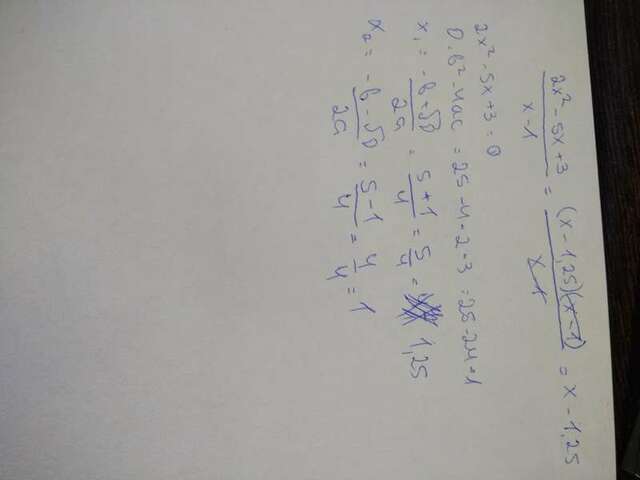 2x² - 5x + 3 / x - 1 = (x - 1,25)(x - 1) / x - 1 = x - 1,25
2x² - 5x + 3 = 0
D. b² - 4ac = 25 - 4 · 2 · 3 = 25 - 24 = 1
x₁ = -b + √D / 2a = 5 + 1 / 4 = 5 / 4 = 1,25
x₂ = -b - √D / 2a = 5 - 1 / 4 = 4 / 4 = 1